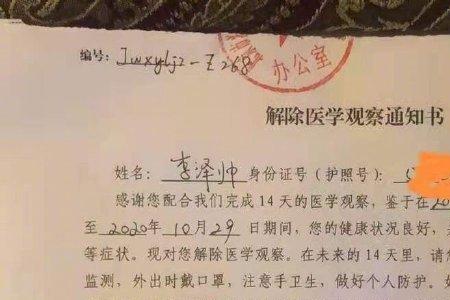 编号：Jwxyljz-Z268
办公室
解除医学观察通知书
姓名：李泽帅 身份证号（护照号）：
感谢您配合我们完成14天的医学观察，鉴于在20
至2020年10月29日期间，您的健康状况良好，
等症状。现对您解除医学观察。在未来的14天里，请
监测，外出时戴口罩，注意手卫生，做好个人防护。